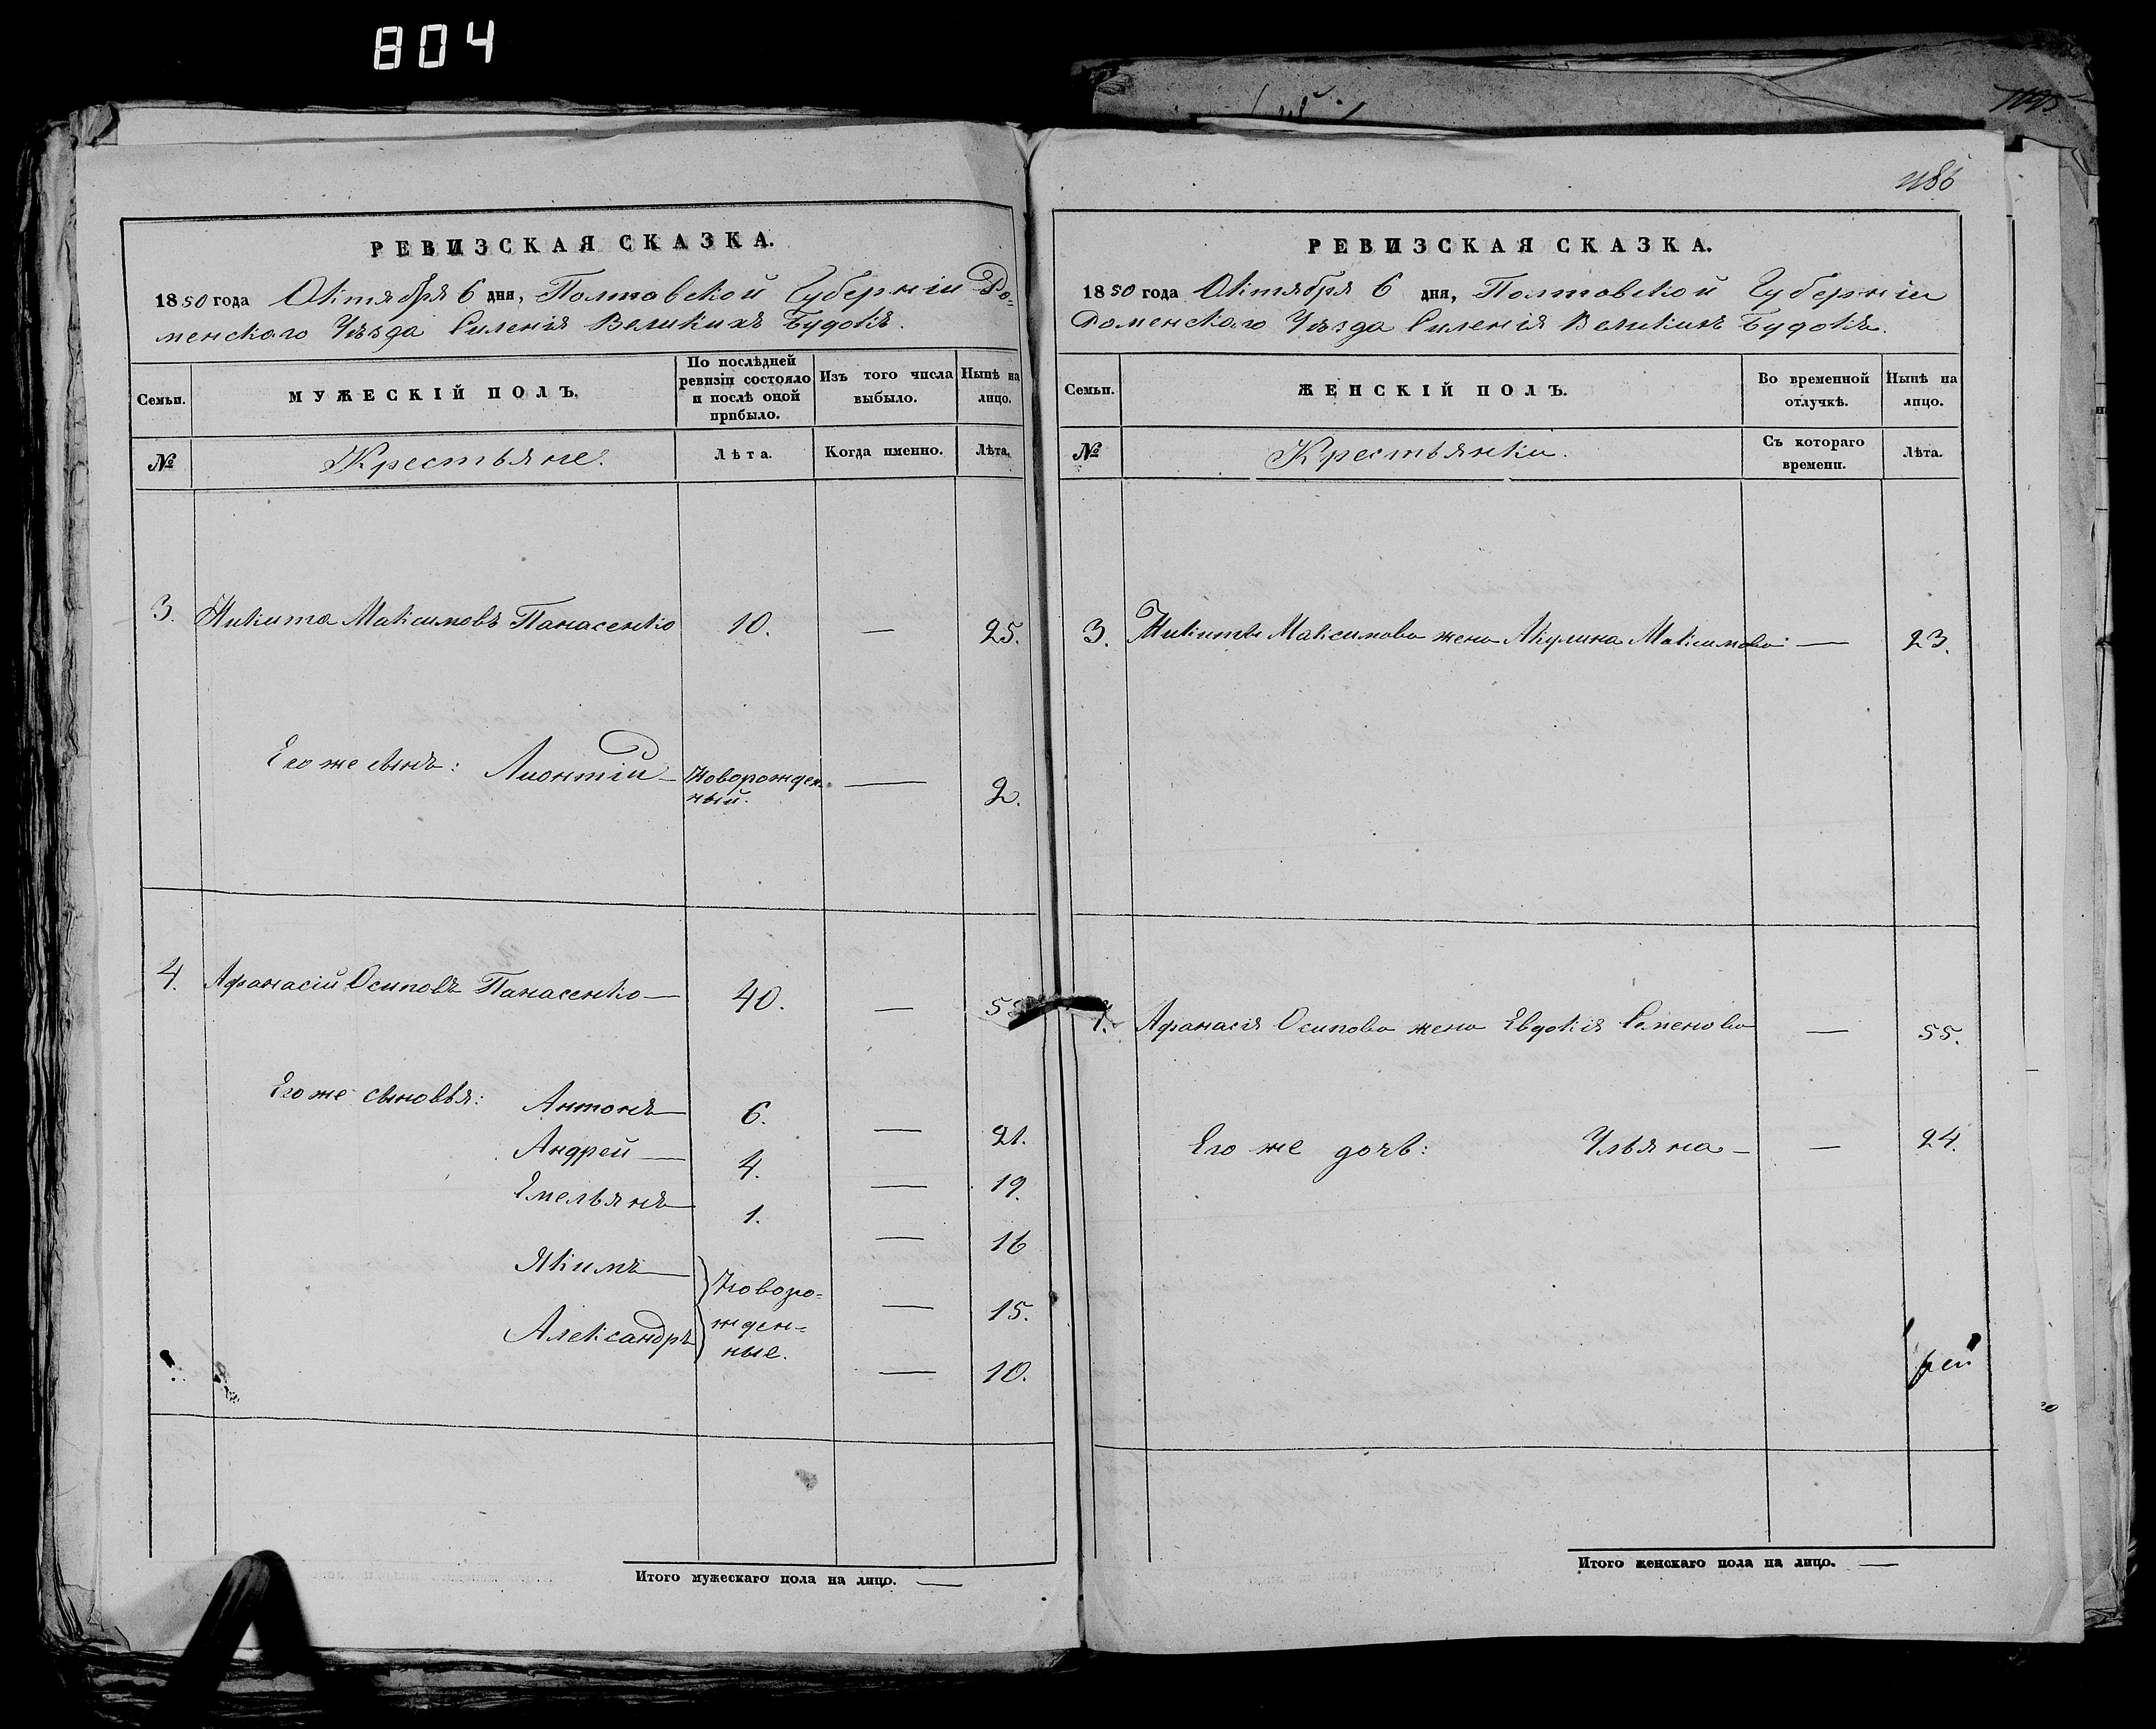 804
1186
РЕВИЗСКАЯ СКАЗКА.
1850 года Октября 6 дня, Полтавской Губерніи Ро=
менскаго Уѣзда Селенія Великихъ Будокъ.
Семьи. МУЖЕСКІЙ ПОЛЪ. По послѣдней ревизіи состояло и послѣ оной прибыло. Изъ того числа выбыло. Нынѣ на лицо.
№ Крестьяне. Лѣта. Когда именно. Лѣта.
3. Никита Максимовъ Панасенко 10. — 25.
Его же сынъ: Леонтій — Новорожден-
ный. — 2.
4. Афанасій Осиповъ Панасенко — 40. — 5
Его же сыновья: Антонъ — 6. — 21.
Андрей — 4. — 19.
Емельянъ — 1. — 16
Якимъ — Новоро= — 15.
Александръ жден=
ные. — 10.
Итого мужескаго пола на лицо. —
РЕВИЗСКАЯ СКАЗКА.
1850 года Октября 6 дня, Полтавской Губерніи
Роменскаго Уѣзда Селенія Великихъ Будокъ.
Семьи. ЖЕНСКІЙ ПОЛЪ. Во временной отлучкѣ. Нынѣ на лицо.
№ Крестьянки. Съ котораго времени. Лѣта.
3. Никиты Максимова жена Акулина Максимова — 23.
4. Афанасія Осипова жена Евдокія Семенова — 55.
Его же дочь: Ульяна — — 24.
Итого женскаго пола на лицо. —